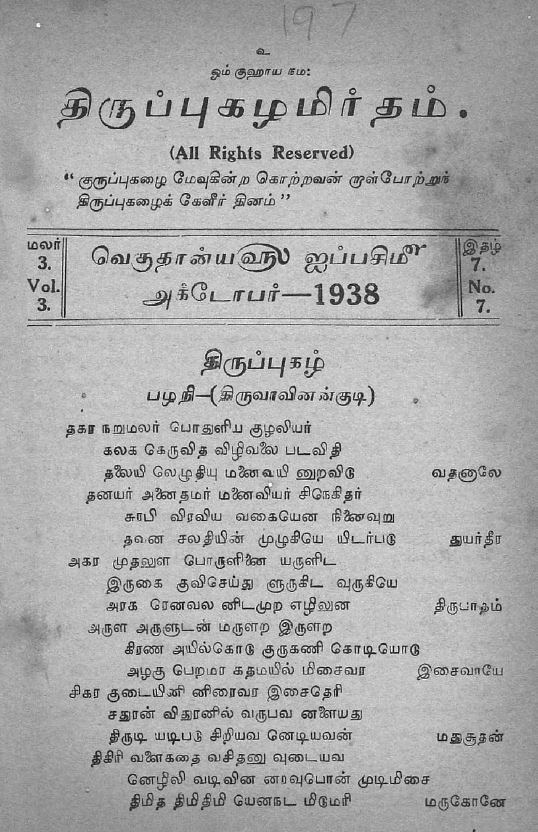 197
உ
ஓம் குஹாய நம:
திருப்புகழமிர்தம்.
(All Rights Reserved)
“ குருப்புகழை மேவுகின்ற கொற்றவன் றாள்போற்றுந்
திருப்புகழைக் கேளீர் தினம் ”
மலர் 3. Vol. 3.
வெகுதான்ய௵ ஐப்பசி௴
அக்டோபர்—1938
இதழ் 7. No. 7.
திருப்புகழ்
பழநி—(திருவாவினன்குடி)
தகர நறுமலர் பொதுளிய குழலியர்
கலக கெருவித விழிவலை படவிதி
தலையி லெழுதியு மனைவயி னுறவிடு வதனாலே
தனயர் அனைதமர் மனைவியர் சிநெகிதர்
சுரபி விரவிய வகையென நினைவுறு
தவன சலதியின் முழுகியே யிடர்படு துயர்தீர
அகர முதலுள பொருளினை யருளிட
இருகை குவிசெய்து ளுருகிட வுருகியே
அரக ரெனவல னிடமுற எழிலுன திருபாதம்
அருள அருளுடன் மருளற இருளற
கிரண அயில்கொடு குருகணி கொடியோடு
அழகு பெறமர கதமயில் மிசைவர இசைவாயே
சிகர குடையினி னிரைவர இசைதெரி
சதுரன் விதுரனில் வருபவ னளையது
திருடி யடிபடு சிறியவ னெடியவன் மதுசூதன்
திகிரி வளைகதை வசிதனு வுடையவ
னெழிலி வடிவின னரவுபொன் முடிமிசை
திமித திமிதிமி யெனநட மிடுமரி மருகோனே